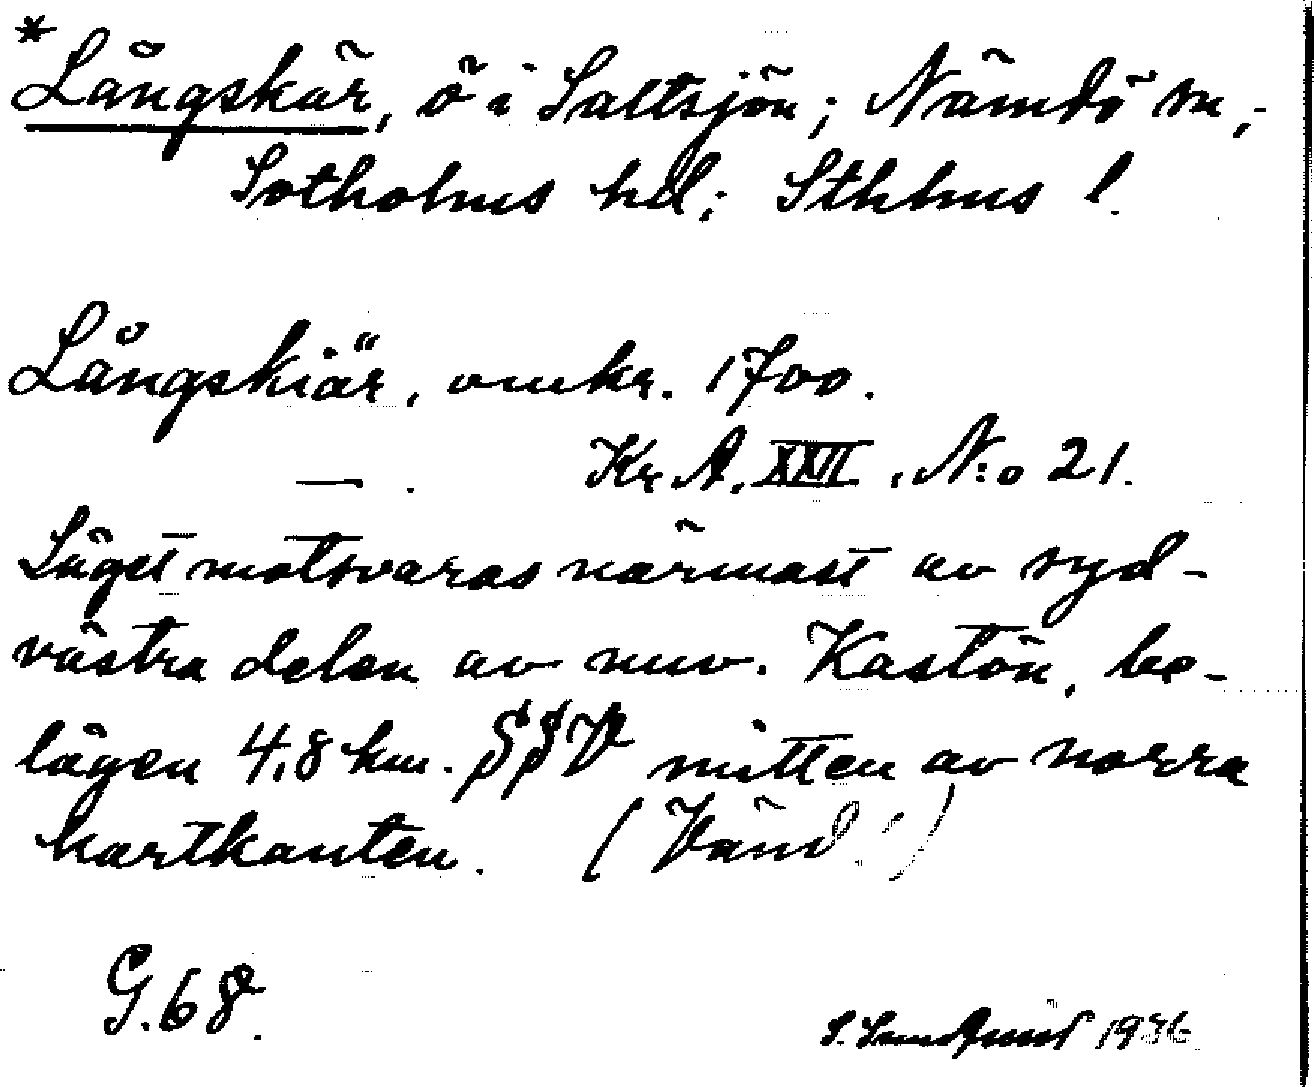 *
Långskär, ö i Saltsjön; Nämdö sn,
Sotholms hd; Sthlms l.
Långskiär, omkr. 1700.
— . Kr. A. XXII, N:o 21.
Läget motsvaras närmast av syd-
västra delen av nuv. Kastön, be-
lägen 4,8 km. SSV mitten av norra
kartkanten. (Vänd!)
G.68.
S. Sundquist 1936